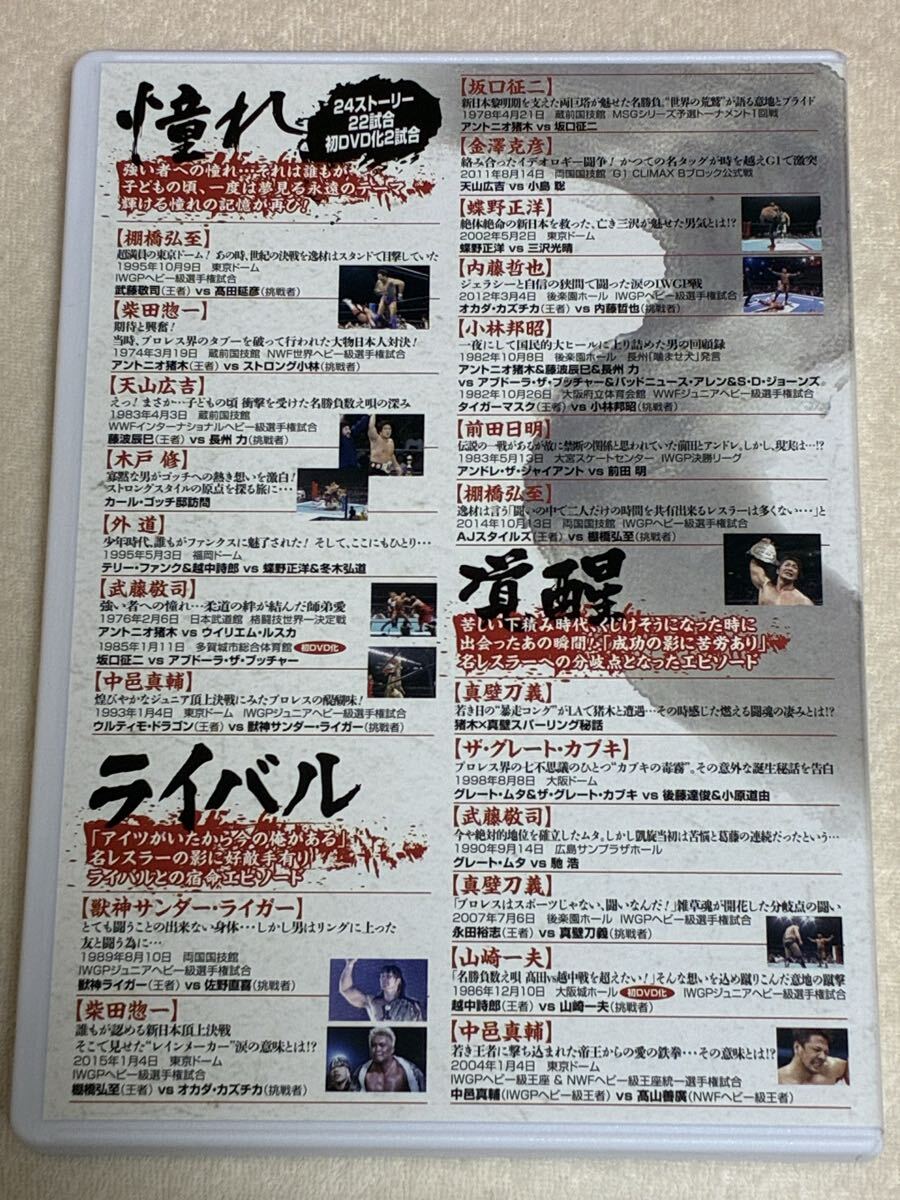 憧れ
24ストーリー
22試合
初DVD化2試合
強い者への憧れ…それは誰もが
子どもの頃、一度は夢見る永遠のテーマ
輝ける憧れの記憶が再び!
【棚橋弘至】
超満員の東京ドーム!あの時、世紀の決戦を逸材はスタンドで目撃していた
1995年10月9日 東京ドーム
IWGPヘビー級選手権試合
武藤敬司(王者) vs 髙田延彦(挑戦者)
【柴田惣一】
期待と興奮!
当時、プロレス界のタブーを破って行われた大物日本人対決!
1974年3月19日 蔵前国技館 NWF世界ヘビー級選手権試合
アントニオ猪木(王者) vs ストロング小林(挑戦者)
【天山広吉】
えっ!まさか…子どもの頃 衝撃を受けた名勝負数え唄の深み
1983年4月3日 蔵前国技館
WWFインターナショナルヘビー級選手権試合
藤波辰巳(王者) vs 長州 力(挑戦者)
【木戸 修】
寡黙な男がゴッチへの熱き想いを激白!
ストロングスタイルの原点を探る旅に・・・
カール・ゴッチ邸訪問
【外 道】
少年時代、誰もがファンクスに魅了された!そして、ここにもひとり・・・
1995年5月3日 福岡ドーム
テリー・ファンク&越中詩郎 vs 蝶野正洋&冬木弘道
【武藤敬司】
強い者への憧れ…柔道の絆が結んだ師弟愛
1976年2月6日 日本武道館 格闘技世界一決定戦
アントニオ猪木 vs ウイリエム・ルスカ
1985年1月11日 多賀城市総合体育館 初DVD化
坂口征二 vs アブドーラ・ザ・ブッチャー
【中邑真輔】
煌びやかなジュニア頂上決戦にみたプロレスの醍醐味!
1993年1月4日 東京ドーム IWGPジュニアヘビー級選手権試合
ウルティモ・ドラゴン(王者) vs 獣神サンダー・ライガー(挑戦者)
ライバル
「アイツがいたから今の俺がある」
名レスラーの影に好敵手有り!
ライバルとの宿命エピソード
【獣神サンダー・ライガー】
とても闘うことの出来ない身体・・・しかし男はリングに上った
友と闘う為に・・・
1989年8月10日 両国国技館
IWGPジュニアヘビー級選手権試合
獣神ライガー(王者) vs 佐野直喜(挑戦者)
【柴田惣一】
誰もが認める新日本頂上決戦
そこで見せた“レインメーカー”涙の意味とは!?
2015年1月4日 東京ドーム
IWGPヘビー級選手権試合
棚橋弘至(王者) vs オカダ・カズチカ(挑戦者)
【坂口征二】
新日本黎明期を支えた両巨塔が魅せた名勝負。“世界の荒鷲”が語る意地とプライド
1978年4月21日 蔵前国技館 MSGシリーズ予選トーナメント1回戦
アントニオ猪木 vs 坂口征二
【金澤克彦】
絡み合ったイデオロギー闘争!かつての名タッグが時を越えG1で激突
2011年8月14日 両国国技館 G1 CLIMAX Bブロック公式戦
天山広吉 vs 小島 聡
【蝶野正洋】
絶体絶命の新日本を救った、亡き三沢が魅せた男気とは!?
2002年5月2日 東京ドーム
蝶野正洋 vs 三沢光晴
【内藤哲也】
ジェラシーと自信の狭間で闘った涙のIWGP戦
2012年3月4日 後楽園ホール IWGPヘビー級選手権試合
オカダ・カズチカ(王者) vs 内藤哲也(挑戦者)
【小林邦昭】
一夜にして国民的大ヒールに上り詰めた男の回顧録
1982年10月8日 後楽園ホール 長州「噛ませ犬」発言
アントニオ猪木&藤波辰巳&長州 力
vs アブドーラ・ザ・ブッチャー&バッドニュース・アレン&S・D・ジョーンズ
1982年10月26日 大阪府立体育会館 WWFジュニアヘビー級選手権試合
タイガーマスク(王者) vs 小林邦昭(挑戦者)
【前田日明】
伝説の一戦があるが故に禁断の関係と思われていた前田とアンドレ。しかし、現実は…!?
1983年5月13日 大宮スケートセンター IWGP決勝リーグ
アンドレ・ザ・ジャイアント vs 前田 明
【棚橋弘至】
逸材は言う「闘いの中で二人だけの時間を共有出来るレスラーは多くない・・・」と
2014年10月13日 両国国技館 IWGPヘビー級選手権試合
AJスタイルズ(王者) vs 棚橋弘至(挑戦者)
覚醒
苦しい下積み時代、くじけそうになった時に
出会ったあの瞬間!「成功の影に苦労あり」
名レスラーへの分岐点となったエピソード
【真壁刀義】
若き日の“暴走コング”がLAで猪木と遭遇…その時感じた燃える闘魂の凄みとは!?
猪木×真壁スパーリング秘話
【ザ・グレート・カブキ】
プロレス界の七不思議のひとつ“カブキの毒霧”。その意外な誕生秘話を告白
1998年8月8日 大阪ドーム
グレート・ムタ&ザ・グレート・カブキ vs 後藤達俊&小原道由
【武藤敬司】
今や絶対的地位を確立したムタ。しかし凱旋当初は苦悩と葛藤の連続だったという…
1990年9月14日 広島サンプラザホール
グレート・ムタ vs 馳 浩
【真壁刀義】
「プロレスはスポーツじゃない、闘いなんだ!」雑草魂が開花した分岐点の闘い
2007年7月6日 後楽園ホール IWGPヘビー級選手権試合
永田裕志(王者) vs 真壁刀義(挑戦者)
【山崎一夫】
「名勝負数え唄 高田vs越中戦を超えたい!」そんな想いを込め蹴りこんだ意地の蹴撃
1986年12月10日 大阪城ホール 初DVD化 IWGPジュニアヘビー級選手権試合
越中詩郎(王者) vs 山崎一夫(挑戦者)
【中邑真輔】
若き王者に撃ち込まれた帝王からの愛の鉄拳…その意味とは!?
2004年1月4日 東京ドーム
IWGPヘビー級王座 & NWFヘビー級王座統一選手権試合
中邑真輔(IWGPヘビー級王者) vs 髙山善廣(NWFヘビー級王者)